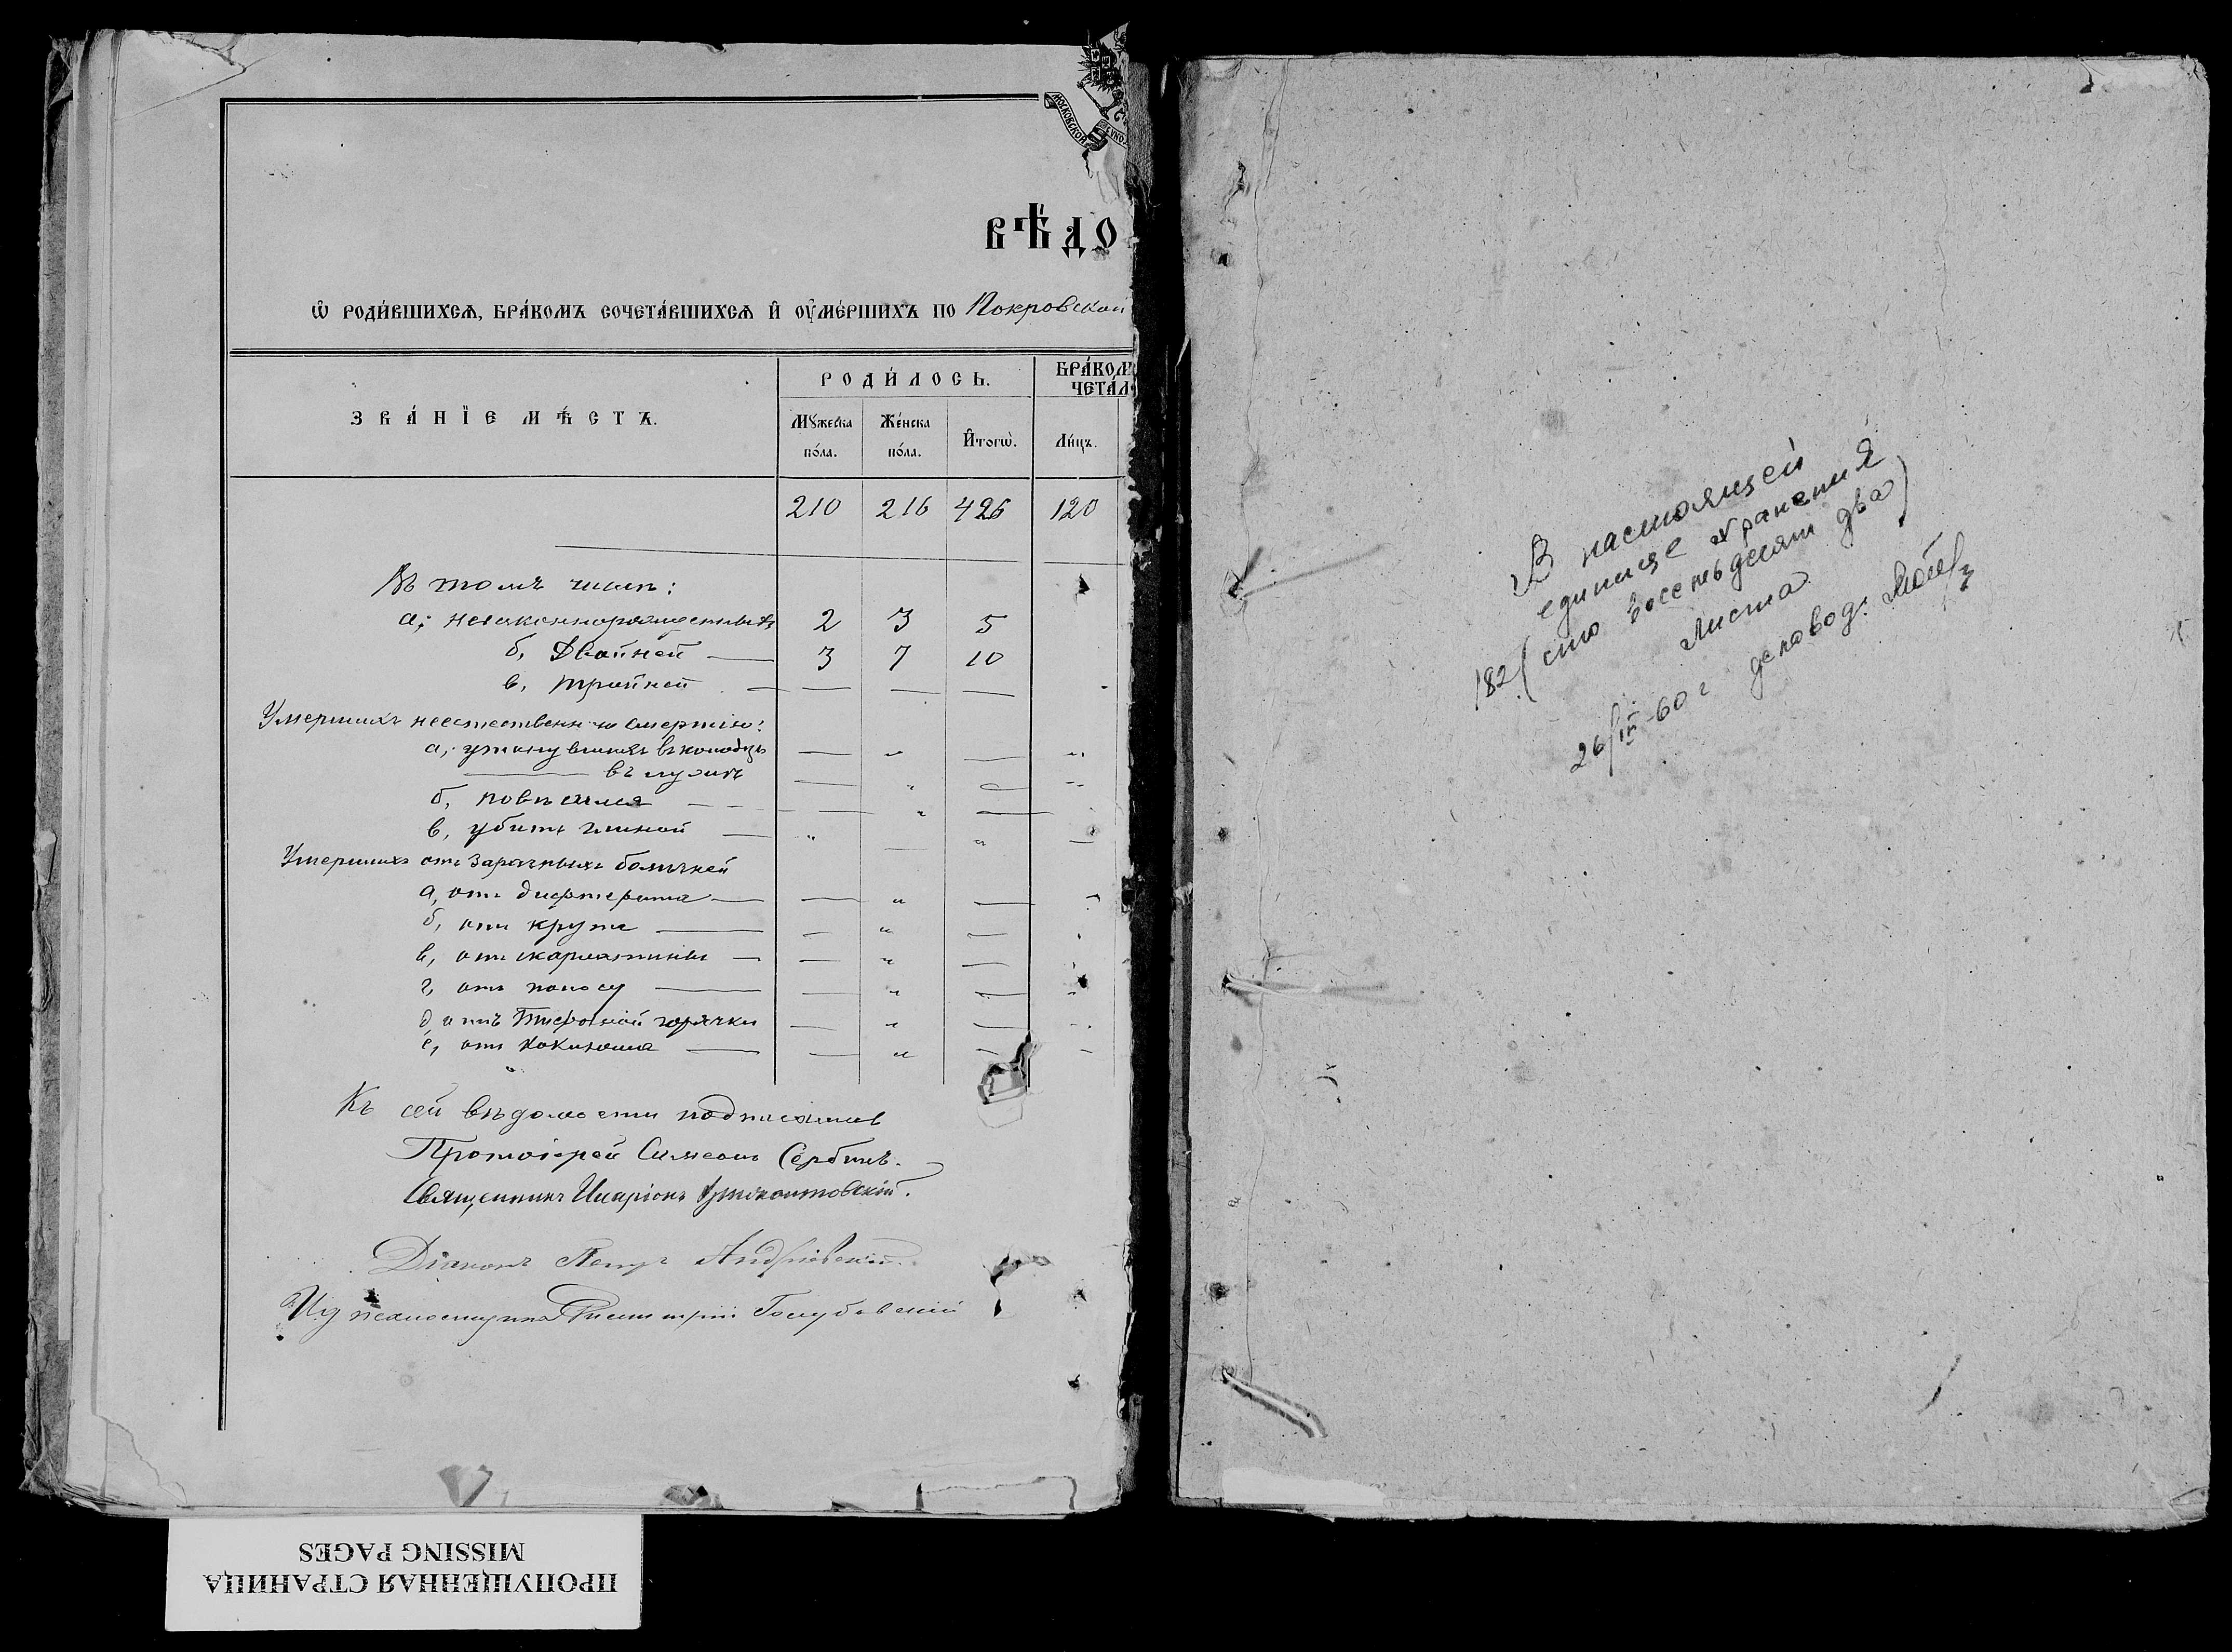 МОСКОВСКОЙ СѴНО
ВѢДО
Ѡ РОДИ́ВШИХСѦ, БРА́КОМЪ СОЧЕТА́ВШИХСѦ И҆ ОУ҆МЕ́РШИХЪ ПО Покровской
ЗВА́НІЕ МѢ́СТЪ.
РОДИ́ЛОСЬ.
БРА́КОМ
ЧЕТА́Л
Мꙋ́жеска по́ла.
Же́нска по́ла.
И҆тогѡ̀.
Ли́цъ.
210 216 426 120
Въ томъ числѣ:
а, незаконнорожденныхъ 2 3 5
б, Двойней — 3 7 10
в, тройней — — — —
Умершихъ неестественною смертію:
а, утонувшихъ въ колодцѣ — „ —
— въ лужѣ — „ —
б, повѣсился — — „ —
в, убитъ глиной — „ — „ —
Умершихъ отъ заразныхъ болѣзней
а, отъ дифтерита — — „ —
б, отъ крупа — — „ —
в, отъ скарлатины — — „ —
г, отъ поносу — — „ —
д, отъ Тифозной горячки — „ —
е, отъ коклюша — — „ — —
Къ сей вѣдомости подписались
Протоіерей Симеонъ Сербинъ.
Священникъ Иларіонъ
Діаконъ Петръ Андріевскій.
Из псаломщика Димитрій Голубовскій
В настоящей
единице хранения
182 (сто восемьдесят два)
листа
26/IV-60 г деловод.
ПРОПУЩЕННАЯ СТРАНИЦА
MISSING PAGES